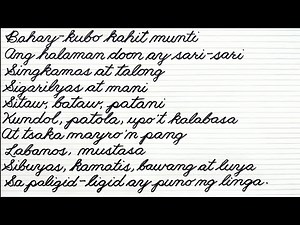 Bahay-kubo kahit munti
Ang halaman doon ay sari-sari
Singkamas at talong
Sigarilyas at mani
Sitaw, bataw, patani
Kundol, patola, upo't kalabasa
At tsaka mayro'n pang
Labanos, mustasa
Sibuyas, kamatis, bawang at luya
Sa paligid-ligid ay puno ng linga.